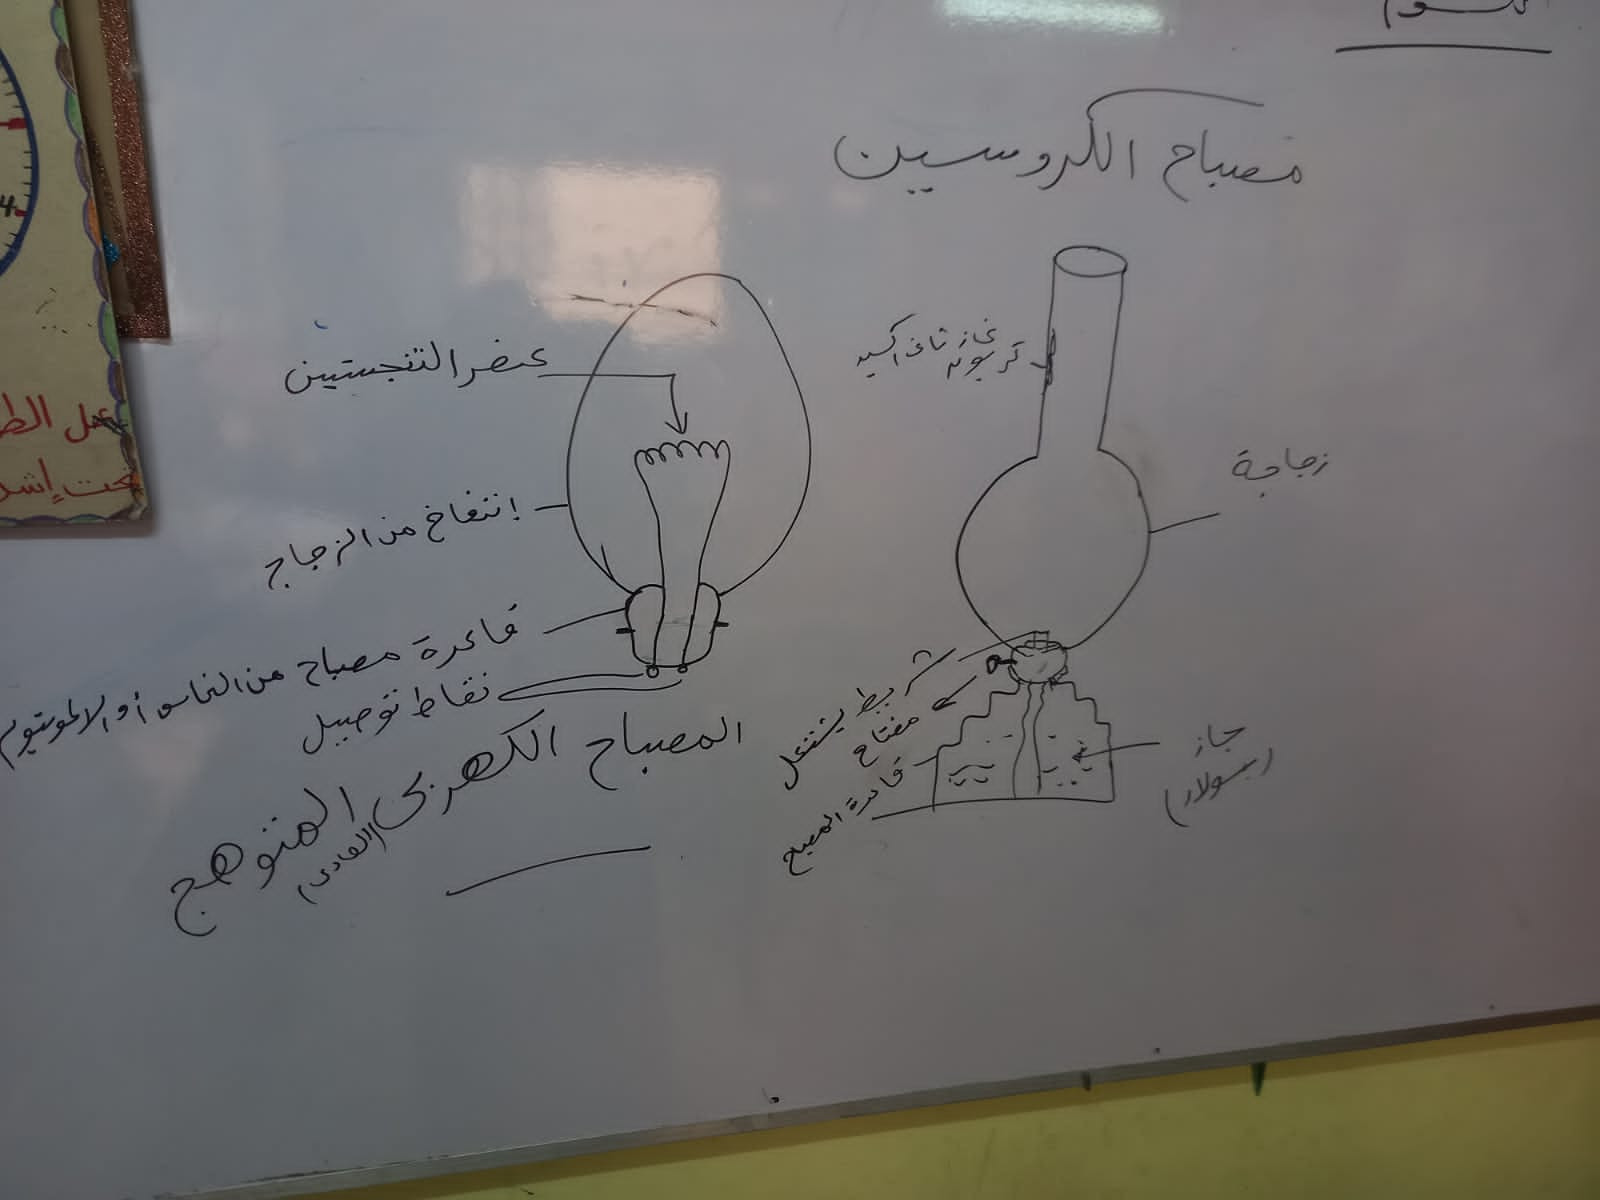 مصباح الكروسين
غاز ثانى اكسيد
كربون
زجاجة
شريط يشتعل
مفتاح
قاعدة المصبح
جاز
(سولار)
عنصر التنجستين
إنتفاخ من الزجاج
قاعدة مصباح من النحاس أو الالمونيوم
نقاط توصيل
المصباح الكهربى المتوهج
(العادى)
4
عمل الط
تحت إشر